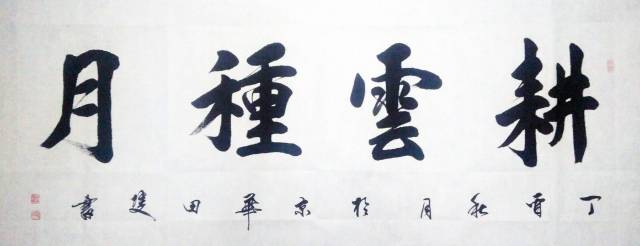 耕雲種月
丁酉秋月於京華田書